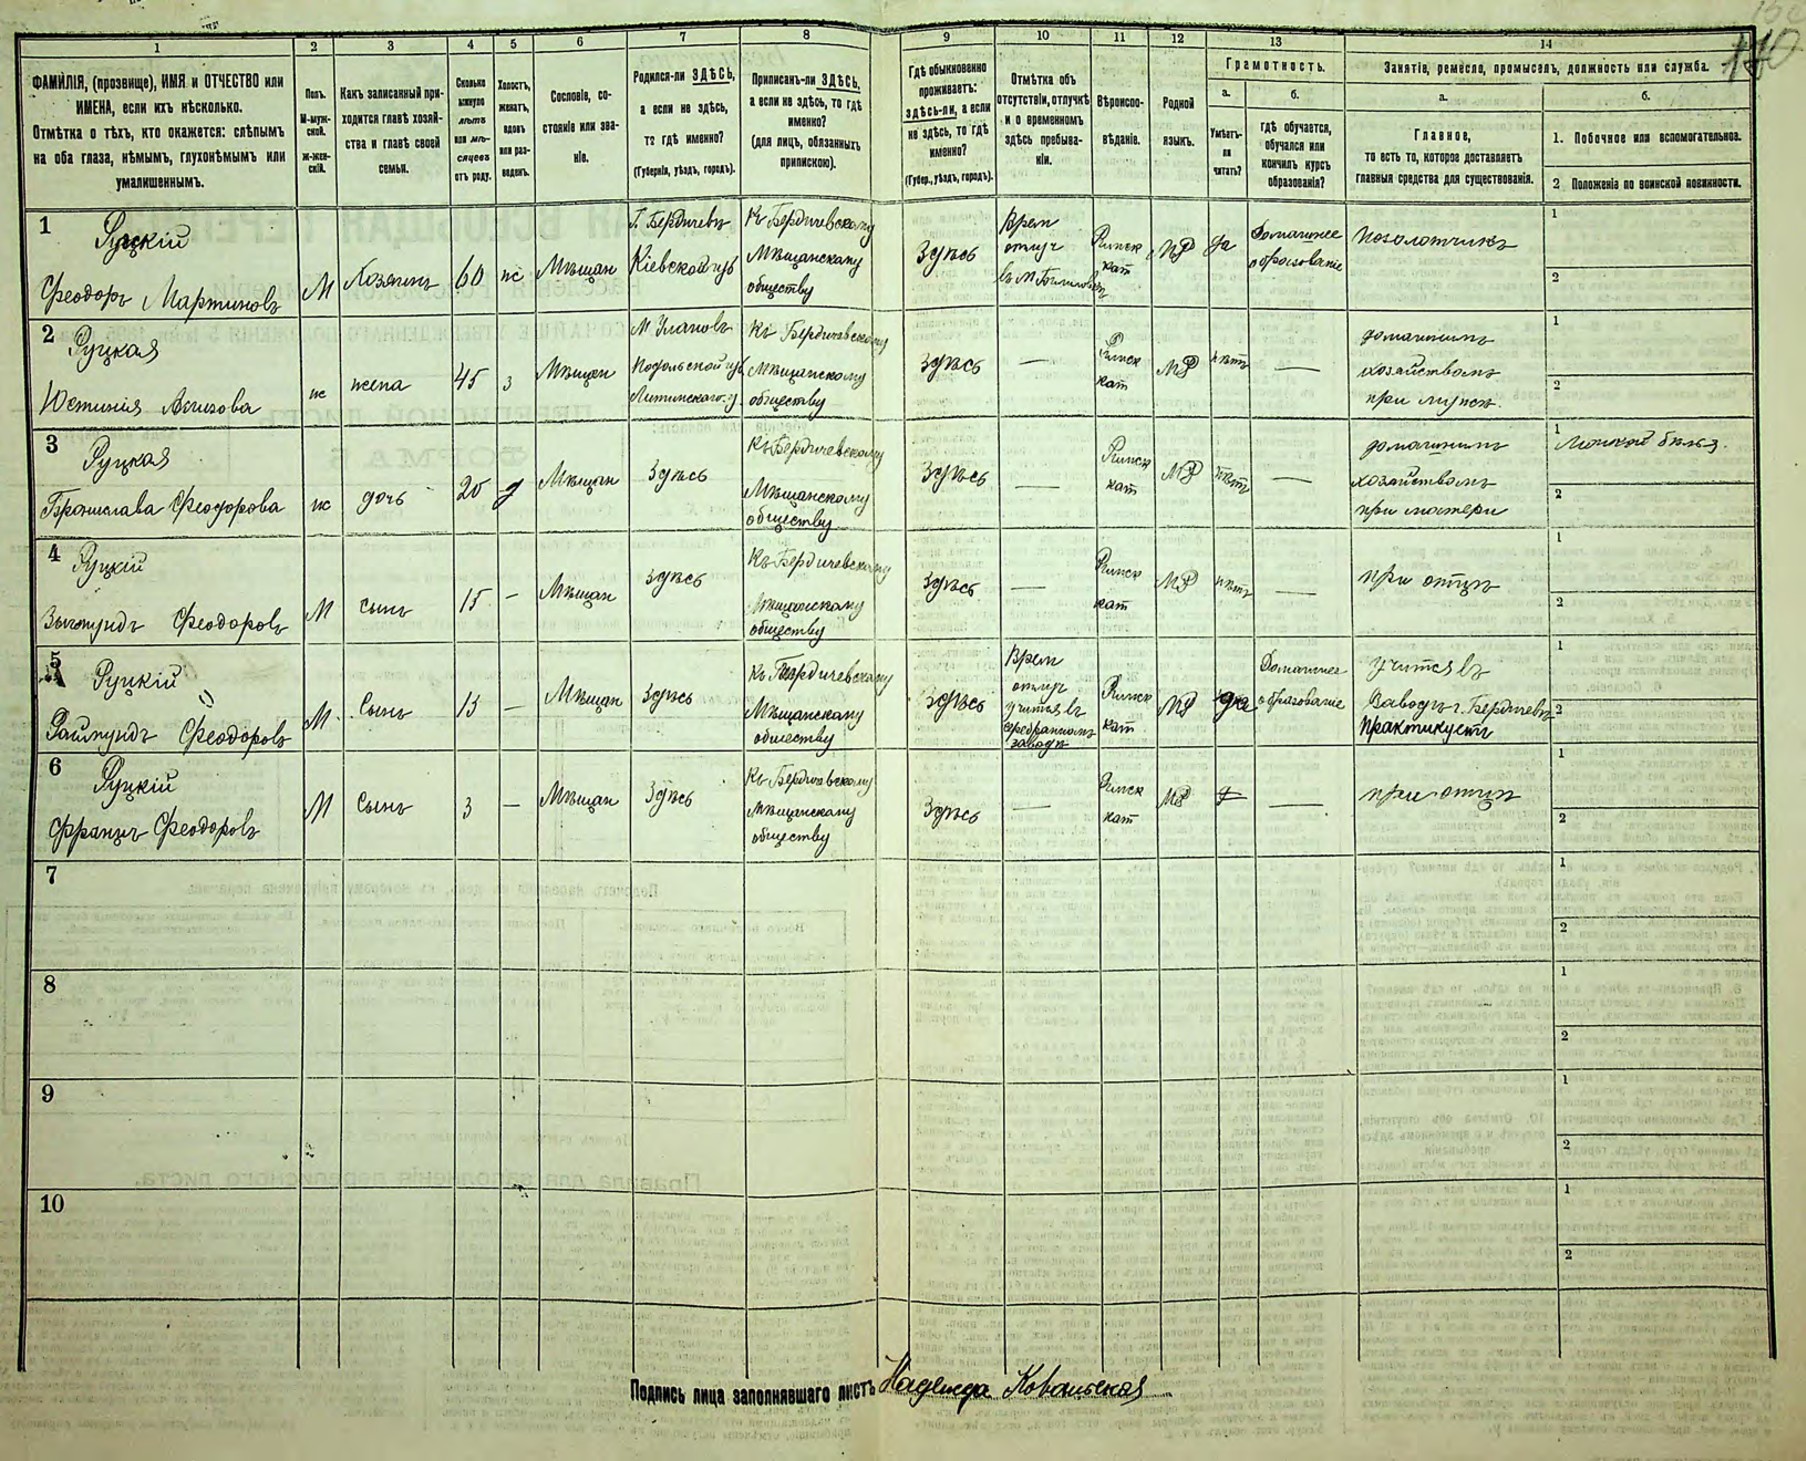 140
1 2 3 4 5 6 7 8 9 10 11 12 13 14
ФАМИЛІЯ, (прозвище), ИМЯ и ОТЧЕСТВО или
ИМЕНА, если ихъ нѣсколько.
Отмѣтка о тѣхъ, кто окажется: слѣпымъ
на оба глаза, нѣмымъ, глухонѣмымъ или
умалишеннымъ.
Полъ.
М-муж-
ской.
Ж-жен-
скій.
Какъ записанный при-
ходится главѣ хозяй-
ства и главѣ своей
семьи.
Сколько
минуло
лѣтъ
или мѣ-
сяцевъ
отъ роду.
Холостъ,
женатъ,
вдовъ
или раз-
веденъ.
Сословіе, со-
стояніе или зва-
ніе.
Родился-ли ЗДѢСЬ,
а если не здѣсь,
то гдѣ именно?
(Губернія, уѣздъ, городъ).
Приписанъ-ли ЗДѢСЬ,
а если не здѣсь, то гдѣ
именно?
(для лицъ, обязанныхъ
припискою).
Гдѣ обыкновенно
проживаетъ:
здѣсь-ли, а если
не здѣсь, то гдѣ
именно?
(Губер., уѣздъ, городъ).
Отмѣтка объ
отсутствіи, отлучкѣ
и о временномъ
здѣсь пребыва-
ніи.
Вѣроиспо-
вѣданіе.
Родной
языкъ.
Грамотность.
а.
Умѣетъ-
ли
читать?
б.
гдѣ обучается,
обучался или
кончилъ курсъ
образованія?
Занятіе, ремесло, промыселъ, должность или служба.
а.
Главное,
то есть то, которое доставляетъ
главныя средства для существованія.
б.
1. Побочное или вспомогательное.
2 Положеніе по воинской повинности.
1
Руцкій
Феодоръ Мартиновъ
М
Хозяинъ
60
ж
Мѣщан
Г. Бердичевъ
Кіевской губ
Къ Бердичевскому
Мѣщанскому
обществу
Здѣсь
Врем
отлуч
въ м
Римск
кат
да
Домашнее
образованіе
Позолотчикъ
1
2
2
Руцкая
Юстинія
ж
жена
45
з
Мѣщан
М. Улановъ
Подольской губ
Литинскаго у
Къ Бердичевскому
Мѣщанскому
обществу
Здѣсь
—
Римск
кат
нѣтъ
—
домашнимъ
хозяйствомъ
при мужѣ
1
2
3
Руцкая
Бронислава Феодорова
ж
дочь
20
д
Мѣщан
Здѣсь
Къ Бердичевскому
Мѣщанскому
обществу
Здѣсь
—
Римск
кат
нѣтъ
—
домашнимъ
хозяйствомъ
при матери
1
2
4
Руцкій
Зыгмундъ Феодоровъ
М
сынъ
15
—
Мѣщан
Здѣсь
Къ Бердичевскому
Мѣщанскому
обществу
Здѣсь
—
Римск
кат
нѣтъ
—
при отцѣ
1
2
5
Руцкій
Раймундъ Феодоровъ
М
Сынъ
13
—
Мѣщан
Здѣсь
Къ Бердичевскому
Мѣщанскому
обществу
Здѣсь
Врем
отлуч
учится въ
серебранномъ
заводѣ
Римск
кат
да
Домашнее
образованіе
учится въ
Заводѣ г. Бердичевъ
практикуетъ
1
2
6
Руцкій
Францъ Феодоровъ
М
Сынъ
3
—
Мѣщан
Здѣсь
Къ Бердичевскому
Мѣщанскому
обществу
Здѣсь
—
Римск
кат
—
при отцѣ
1
2
7
1
2
8
1
2
9
1
2
10
1
2
Подпись лица заполнявшаго листъ Надежда Ковальская